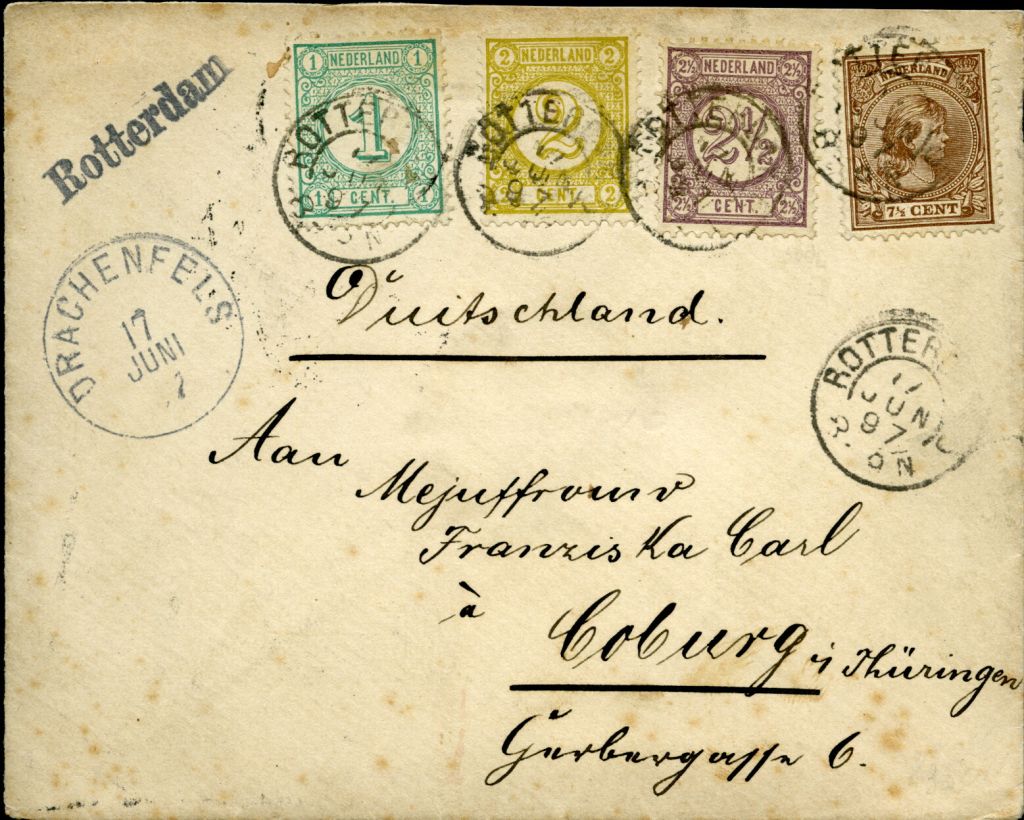 Rotterdam
1 NEDERLAND 1
1
1 CENT. 1
2 NEDERLAND 2
2
2 CENT. 2
2½ NEDERLAND 2½
2½
2½ CENT. 2½
NEDERLAND
7½ CENT
DRACHENFELS
17
JUNI
7
Duitschland.
ROTTER
17
JUN
97
Aan
Mejuffrouw
Franziska Carl
à
Coburg i/ Thüringen
Gerbergasse 6.